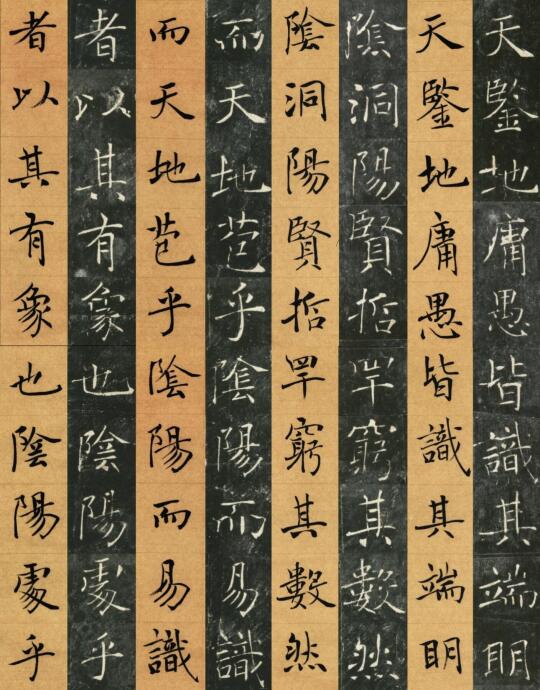 天鑒地庸愚皆識其端明
天鑒地庸愚皆識其端明
陰洞陽賢哲罕窮其數然
陰洞陽賢哲罕窮其數然
而天地苞乎陰陽而易識
而天地苞乎陰陽而易識
者以其有象也陰陽處乎
者以其有象也陰陽處乎